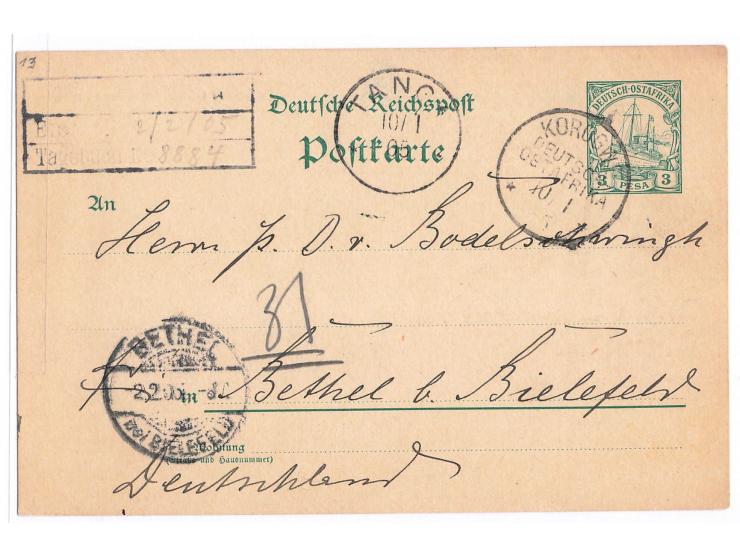 13
2/2/05
Tagebuch 8884
Deutsche Reichspost
Postkarte
TANGA
10/1
05
KOROGWE
DEUTSCH
OSTAFRIKA
10/1
DEUTSCH-OSTAFRIKA
3 PESA 3
An
Herrn p. D. v. Bodelschwingh
31
BETHEL
2.2.05
bei BIELEFELD
in Bethel b. Bielefeld
Wohnung
(Straße und Hausnummer)
Deutschland